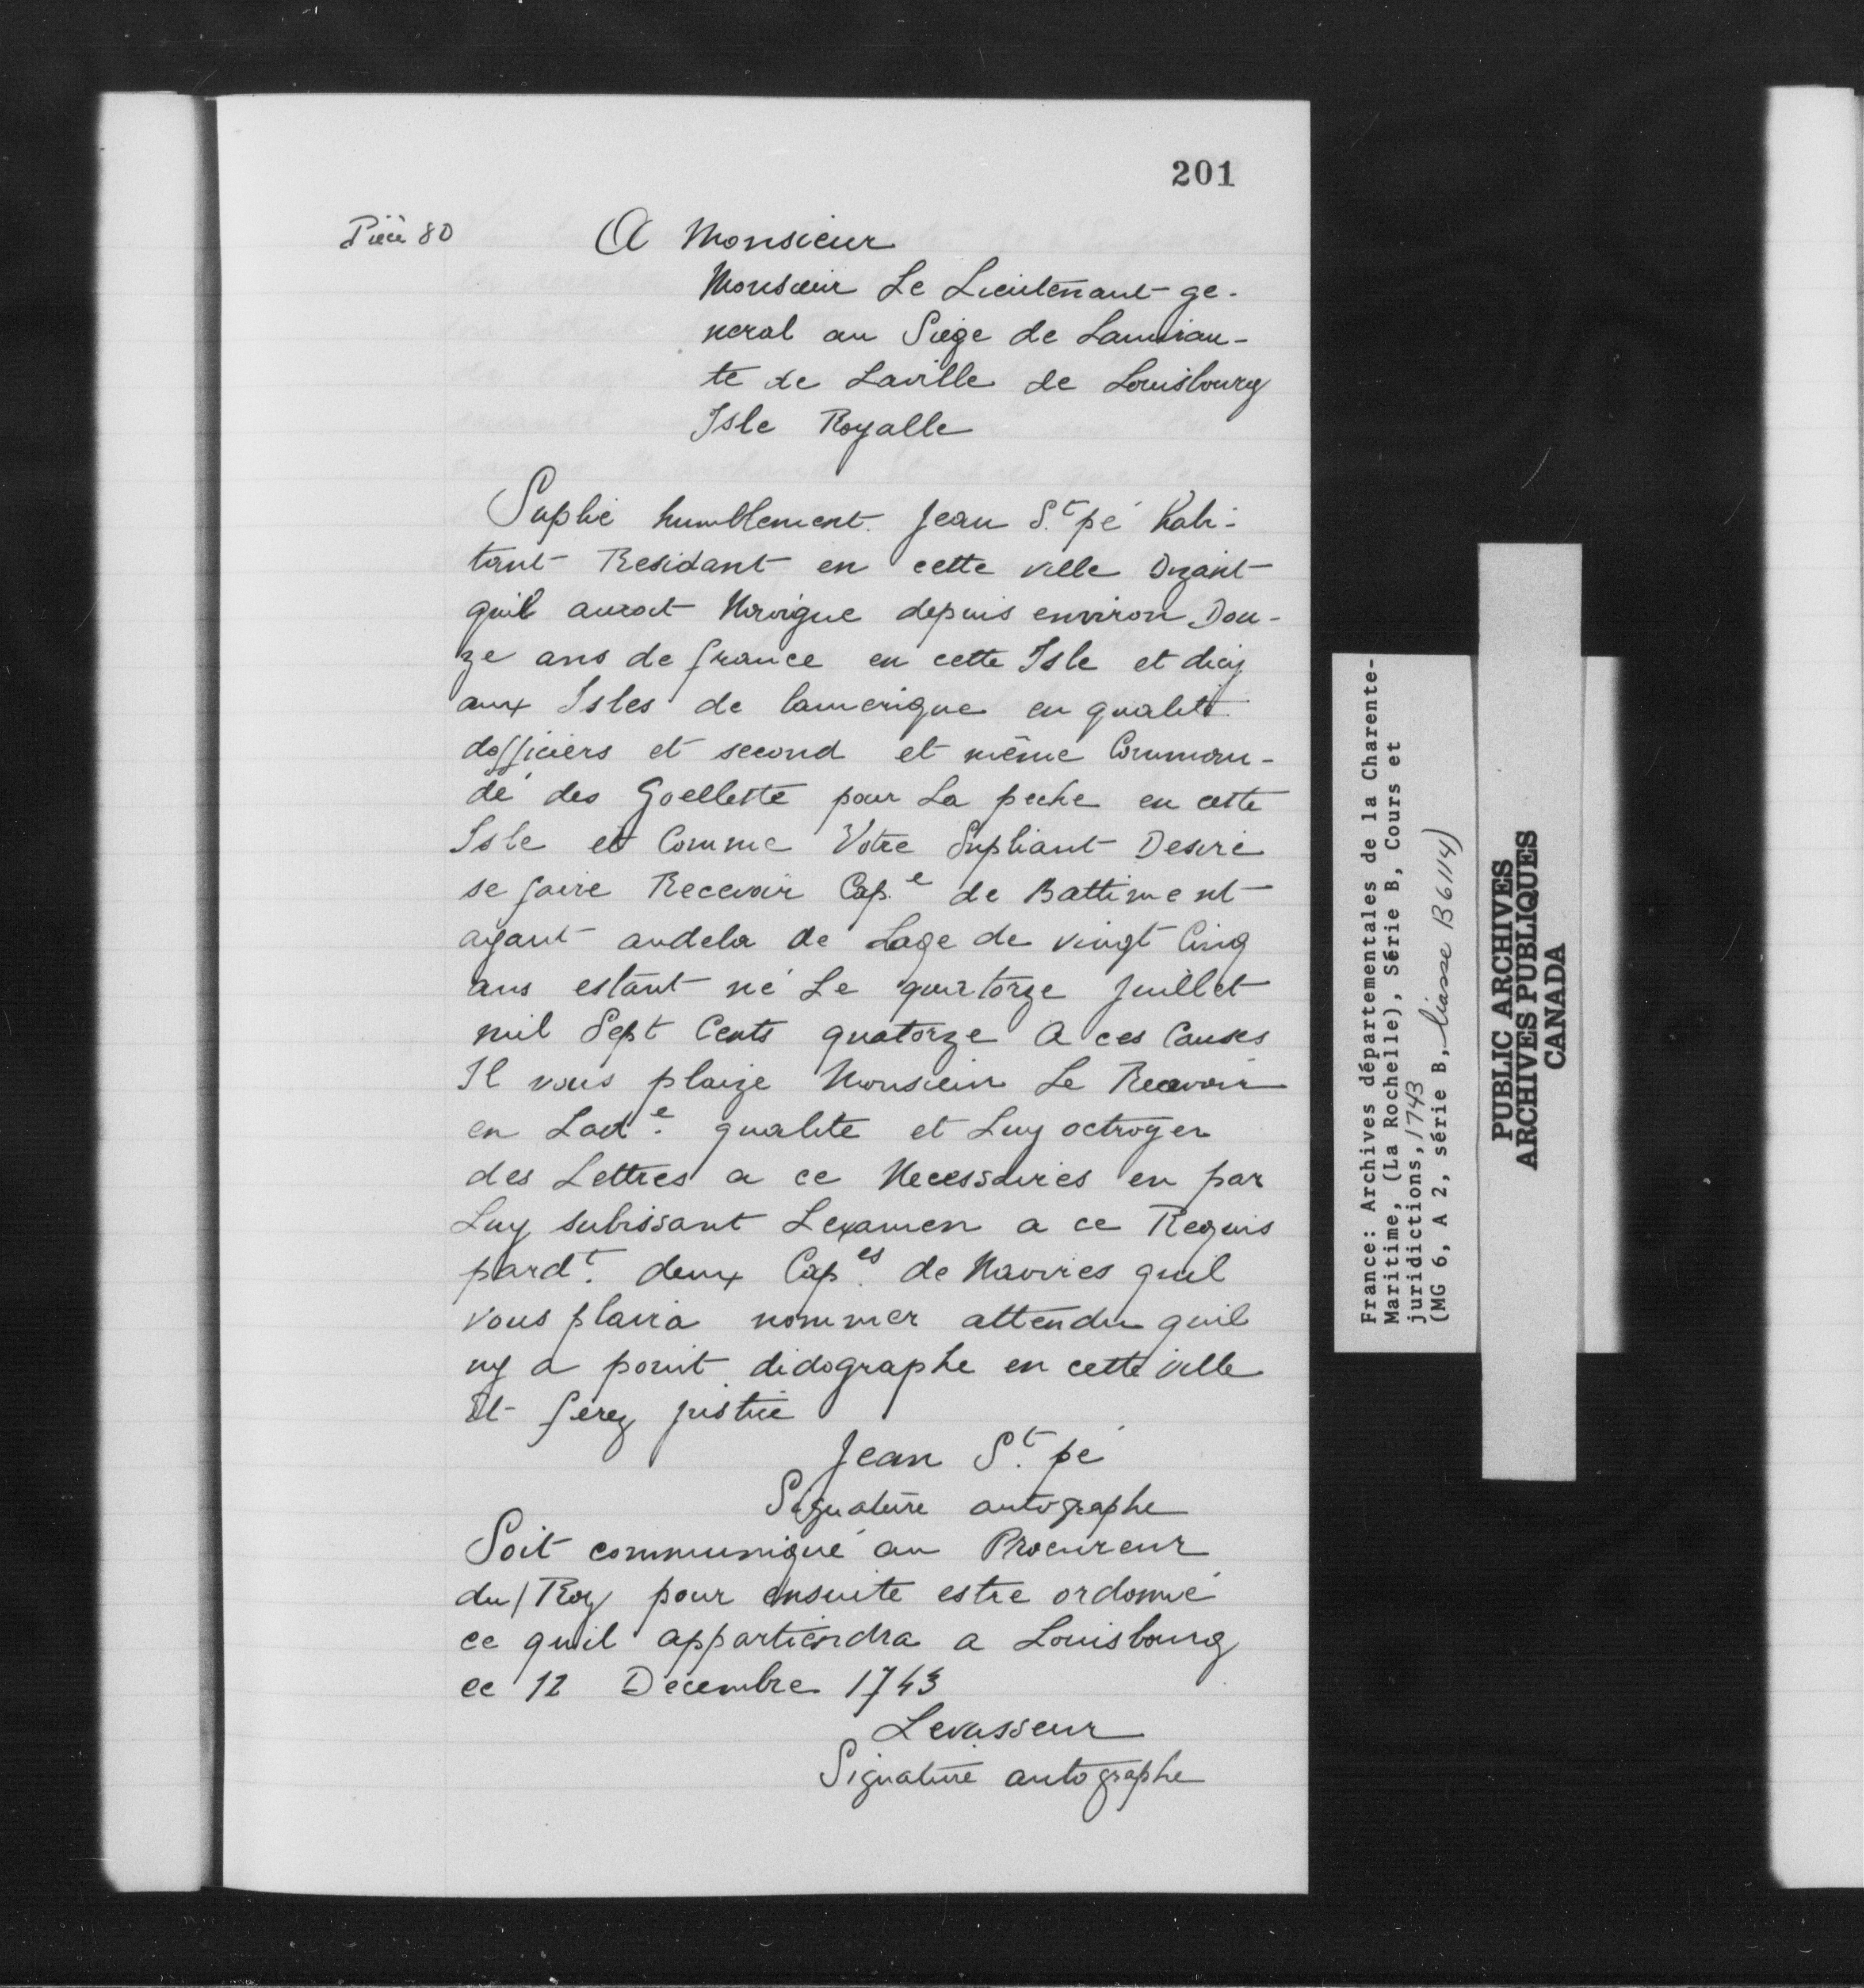 201
Pièce 80
A Monsieur
Monsieur Le Lieutenant ge-
neral au Siège de Lamirau-
te de Laville de Louisbourg
Isle Royalle
Suplie humblement Jean St. pé habi-
tant Residant en cette ville Dizant
quil auroit Navigue depuis environ Dou-
ze ans de france en cette Isle et dicy
aux Isles de lamerique en qualité
dofficiers et second et même Comman-
dé des Goellette pour La peche en cette
Isle et Comme Votre Supliant Desire
se faire Recevoir Cap.e de Battiment
ayant audela de Lage de vingt Cinq
ans estant né Le quatorze Juillet
mil Sept Cents quatorze A ces Causes
Il vous plaize Monsieur Le Recevoir
en Lad.e qualite et Luy octroyer
des Lettres a ce Necessaires en par
Luy subissant Lexamen a ce Requis
pardt. deux Cap.es de Navires quil
vous plaira nommer attendu quil
ny a point didographe en cette ville
Et ferez justice
Jean St. pé
Signature autographe
Soit communiqué au Procureur
du Roy pour ensuite estre ordonné
ce quil appartiendra a Louisbourg
ce 12 Decembre 1743
Levasseur
Signature autographe
France: Archives départementales de la Charente-
Maritime, (La Rochelle), Série B, Cours et
juridictions, 1743
(MG 6, A 2, série B, liasse B6114)
PUBLIC ARCHIVES
ARCHIVES PUBLIQUES
CANADA